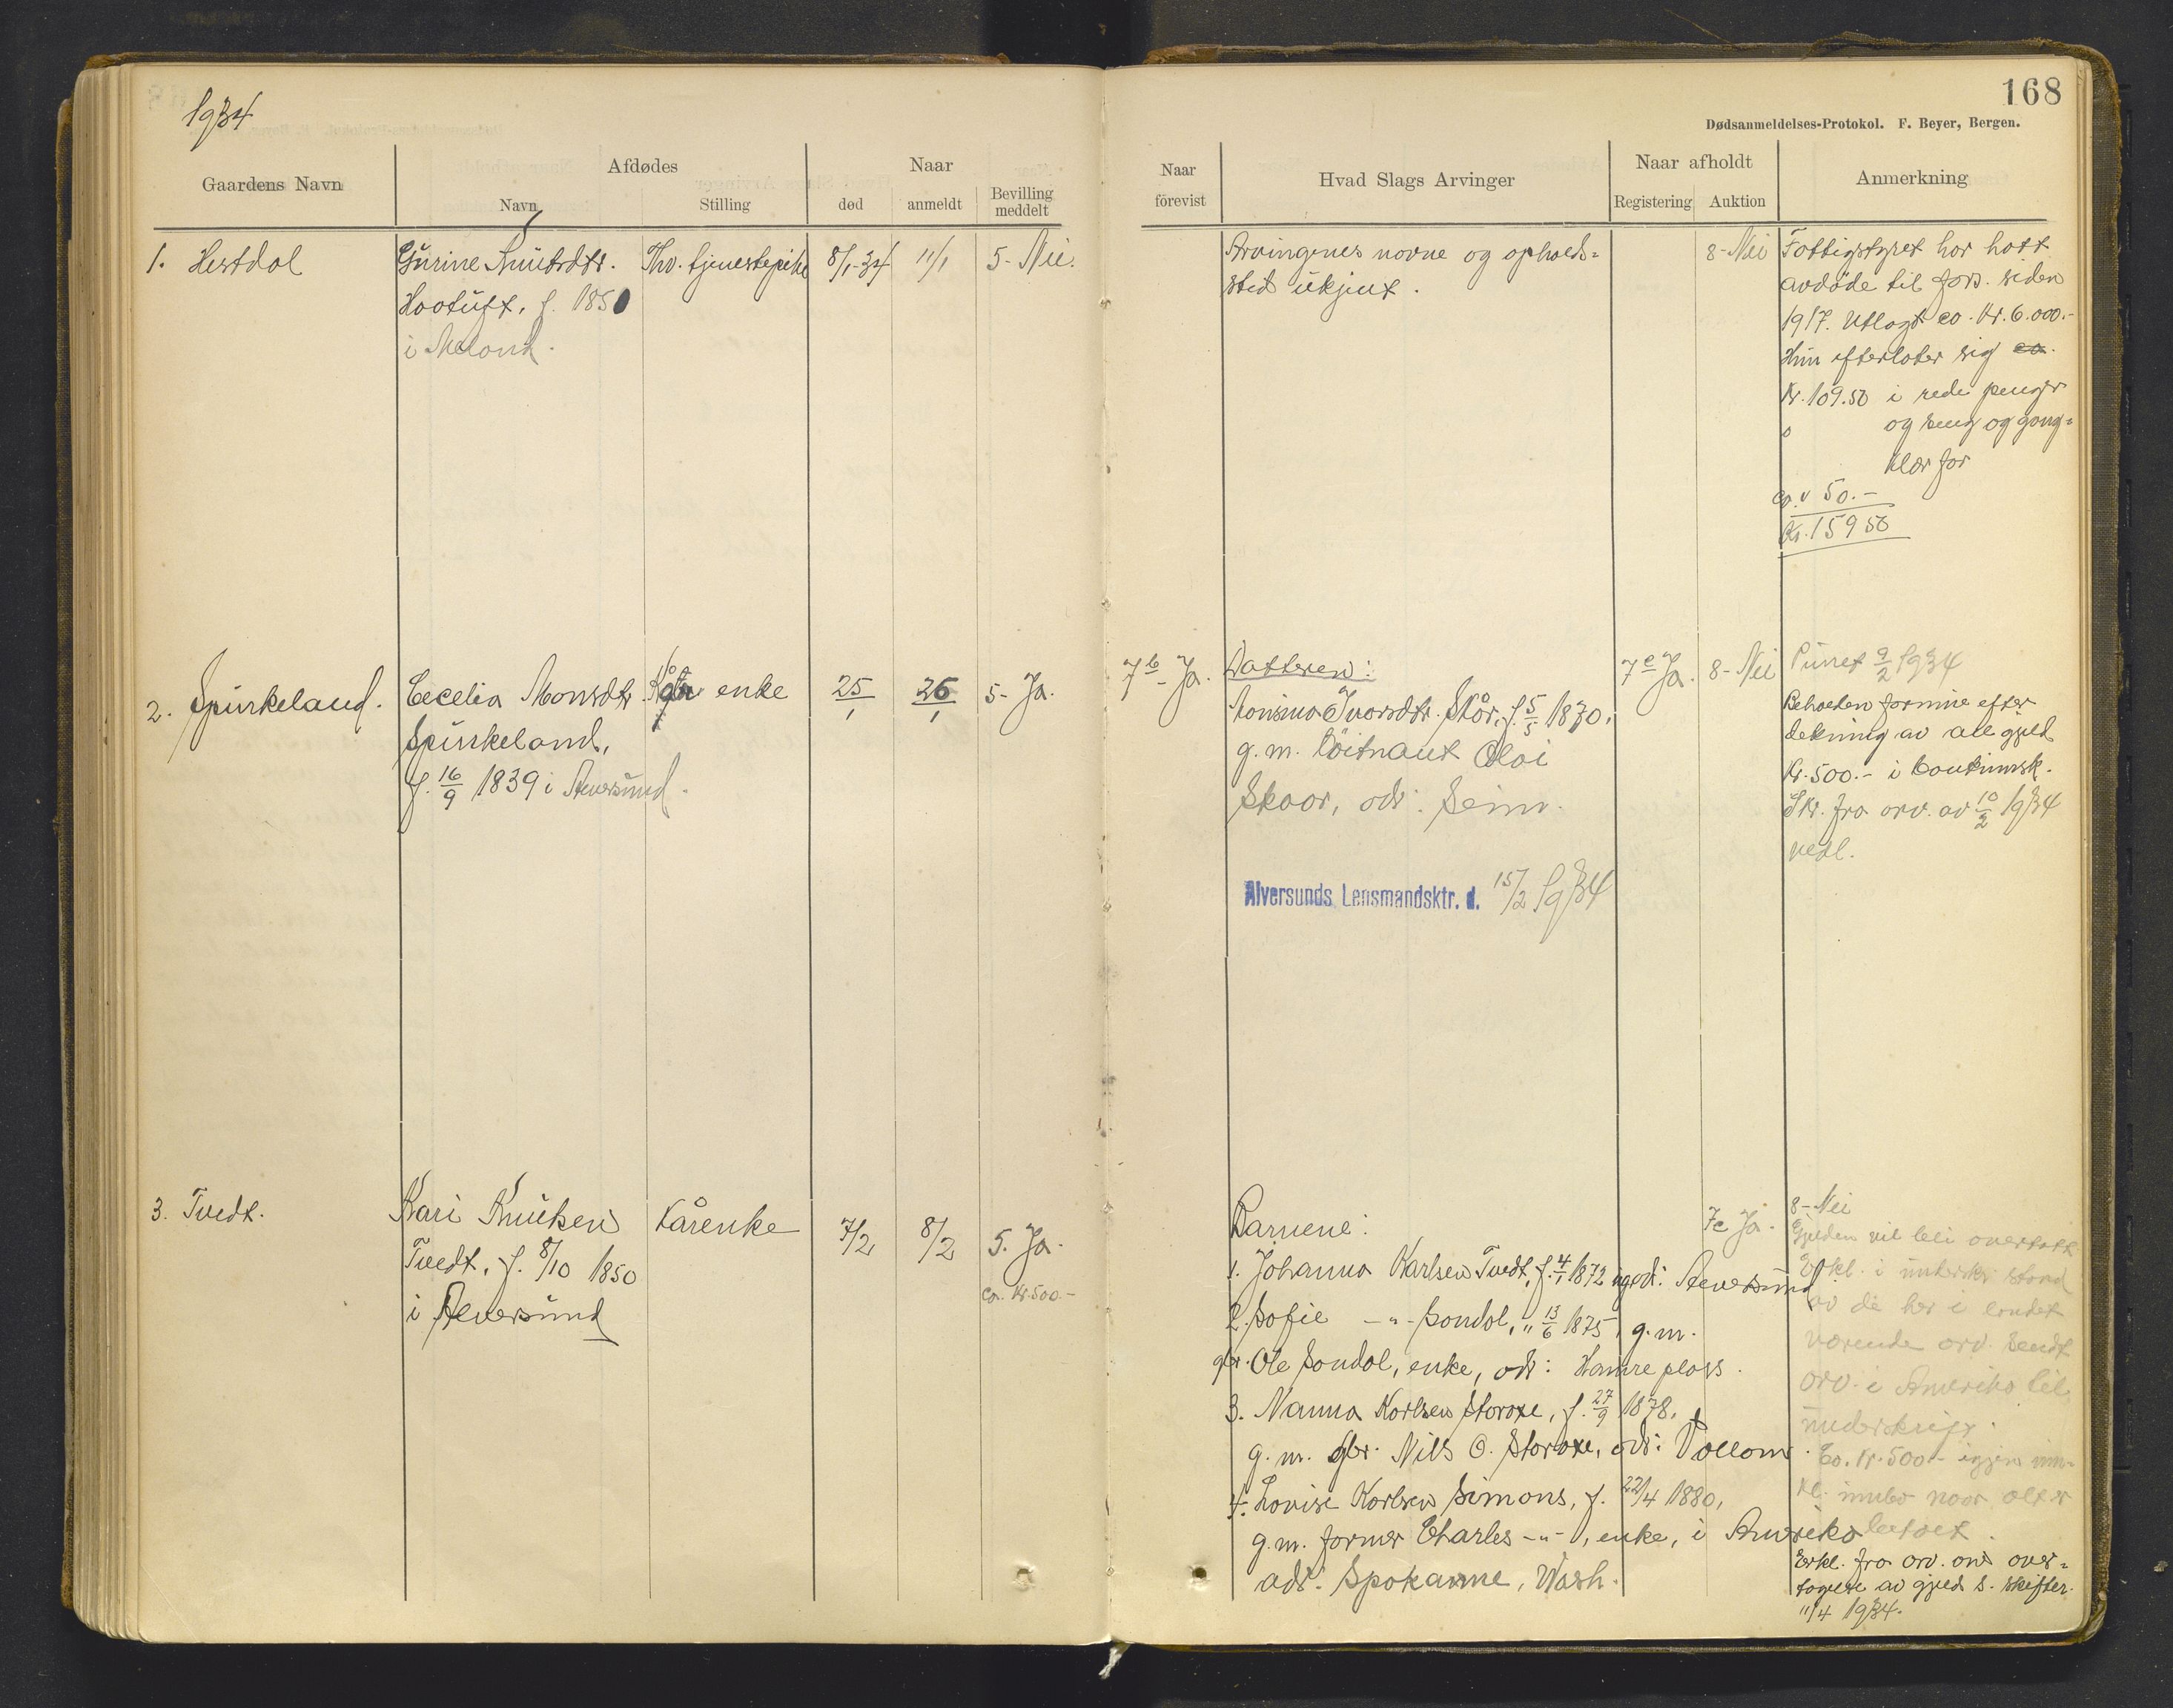 1934
168
Dødsanmeldelses-Protokol. F. Beyer, Bergen.
Gaardens Navn
Afdødes
Navn
Stilling
Naar
død
anmeldt
Bevilling meddelt
Naar förevist
Hvad Slags Arvinger
Naar afholdt
Registering
Auktion
Anmerkning
1. Hestdal
Gurine Knutsdtr.
Hootuft, f. 1850
i Meland.
Fhv. tjenestepike
8/1-34
11/1
5- Nei.
Arvingenes navne og opholds=
sted ukjent.
8- Nei
Fattigstyret har hatt
avdöde til fors. siden
1917. Utlagt ca. Kr. 6.000.-
Hun efterlater sig ca.
Kr. 109.50 i rede penger
og seng og gang=
klær for
ca. " 50.-
Kr. 159 50
2. Spurkeland.
Cecelia Monsdtr.
Spurkeland,
f. 16/9 1839 i Alversund.
enke
25/1
26/1
5- Ja.
7b- Ja.
Datteren:
Ivarsdtr. Skår, f. 5/5 1870,
g.m. löitnant Olai
Skaar, adr: Seim.
Alversunds Lensmandsktr. d. 15/2 1934
7c Ja.
8- Nei
Purret 9/2 1934
Beholden formue efter
dekning av all gjeld
Kr. 500.- i
Skr. fra arv. av 10/2 1934
vedl.
3. Tvedt.
Kari Knutsen
Tvedt, f. 8/10 1850
i Alversund
Kårenke
7/2
8/2
5. Ja.
ca. Kr. 500.-
Barnene:
1. Johanna Karlsen Tvedt, f. 4/1 1872 adr: Alversund
2. Sofie -"- Sondal, " 13/6 1875, g.m.
gbr. Ole Sondal, enke, adr: Hamre plass.
3. Nanna Karlsen Storoxe, f. 27/9 1878,
g.m. gbr. Nils O. Storoxe, adr: Vollom.
4. Lovise Karlsen Simons, f. 22/4 1880,
g.m. farmer Charles -"-, enke, i Amerika
adr. Spokanne, Wash.
7c Ja.
8- Nei
Gjelden vil bli overtatt
Erkl. i
av de her i landet
værende arv. sendt
arv. i Amerika til
underskrift.
Ca. Kr. 500.- igjen
naar alt er
betalt.
Erkl. fra arv. om over=
tagelse av gjeld s. skifter.
11/4 1934.